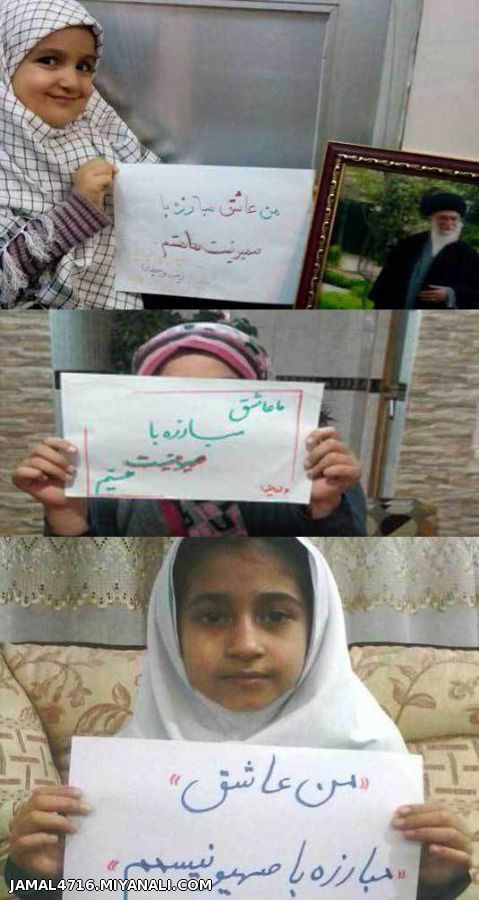 من عاشق مبارزه با
صهیونیست هستم
ما عاشق
مبارزه با
صهیونیست
هستیم
«من عاشق»
«مبارزه با صهیونیسم»
JAMAL4716.MIYANALI.COM